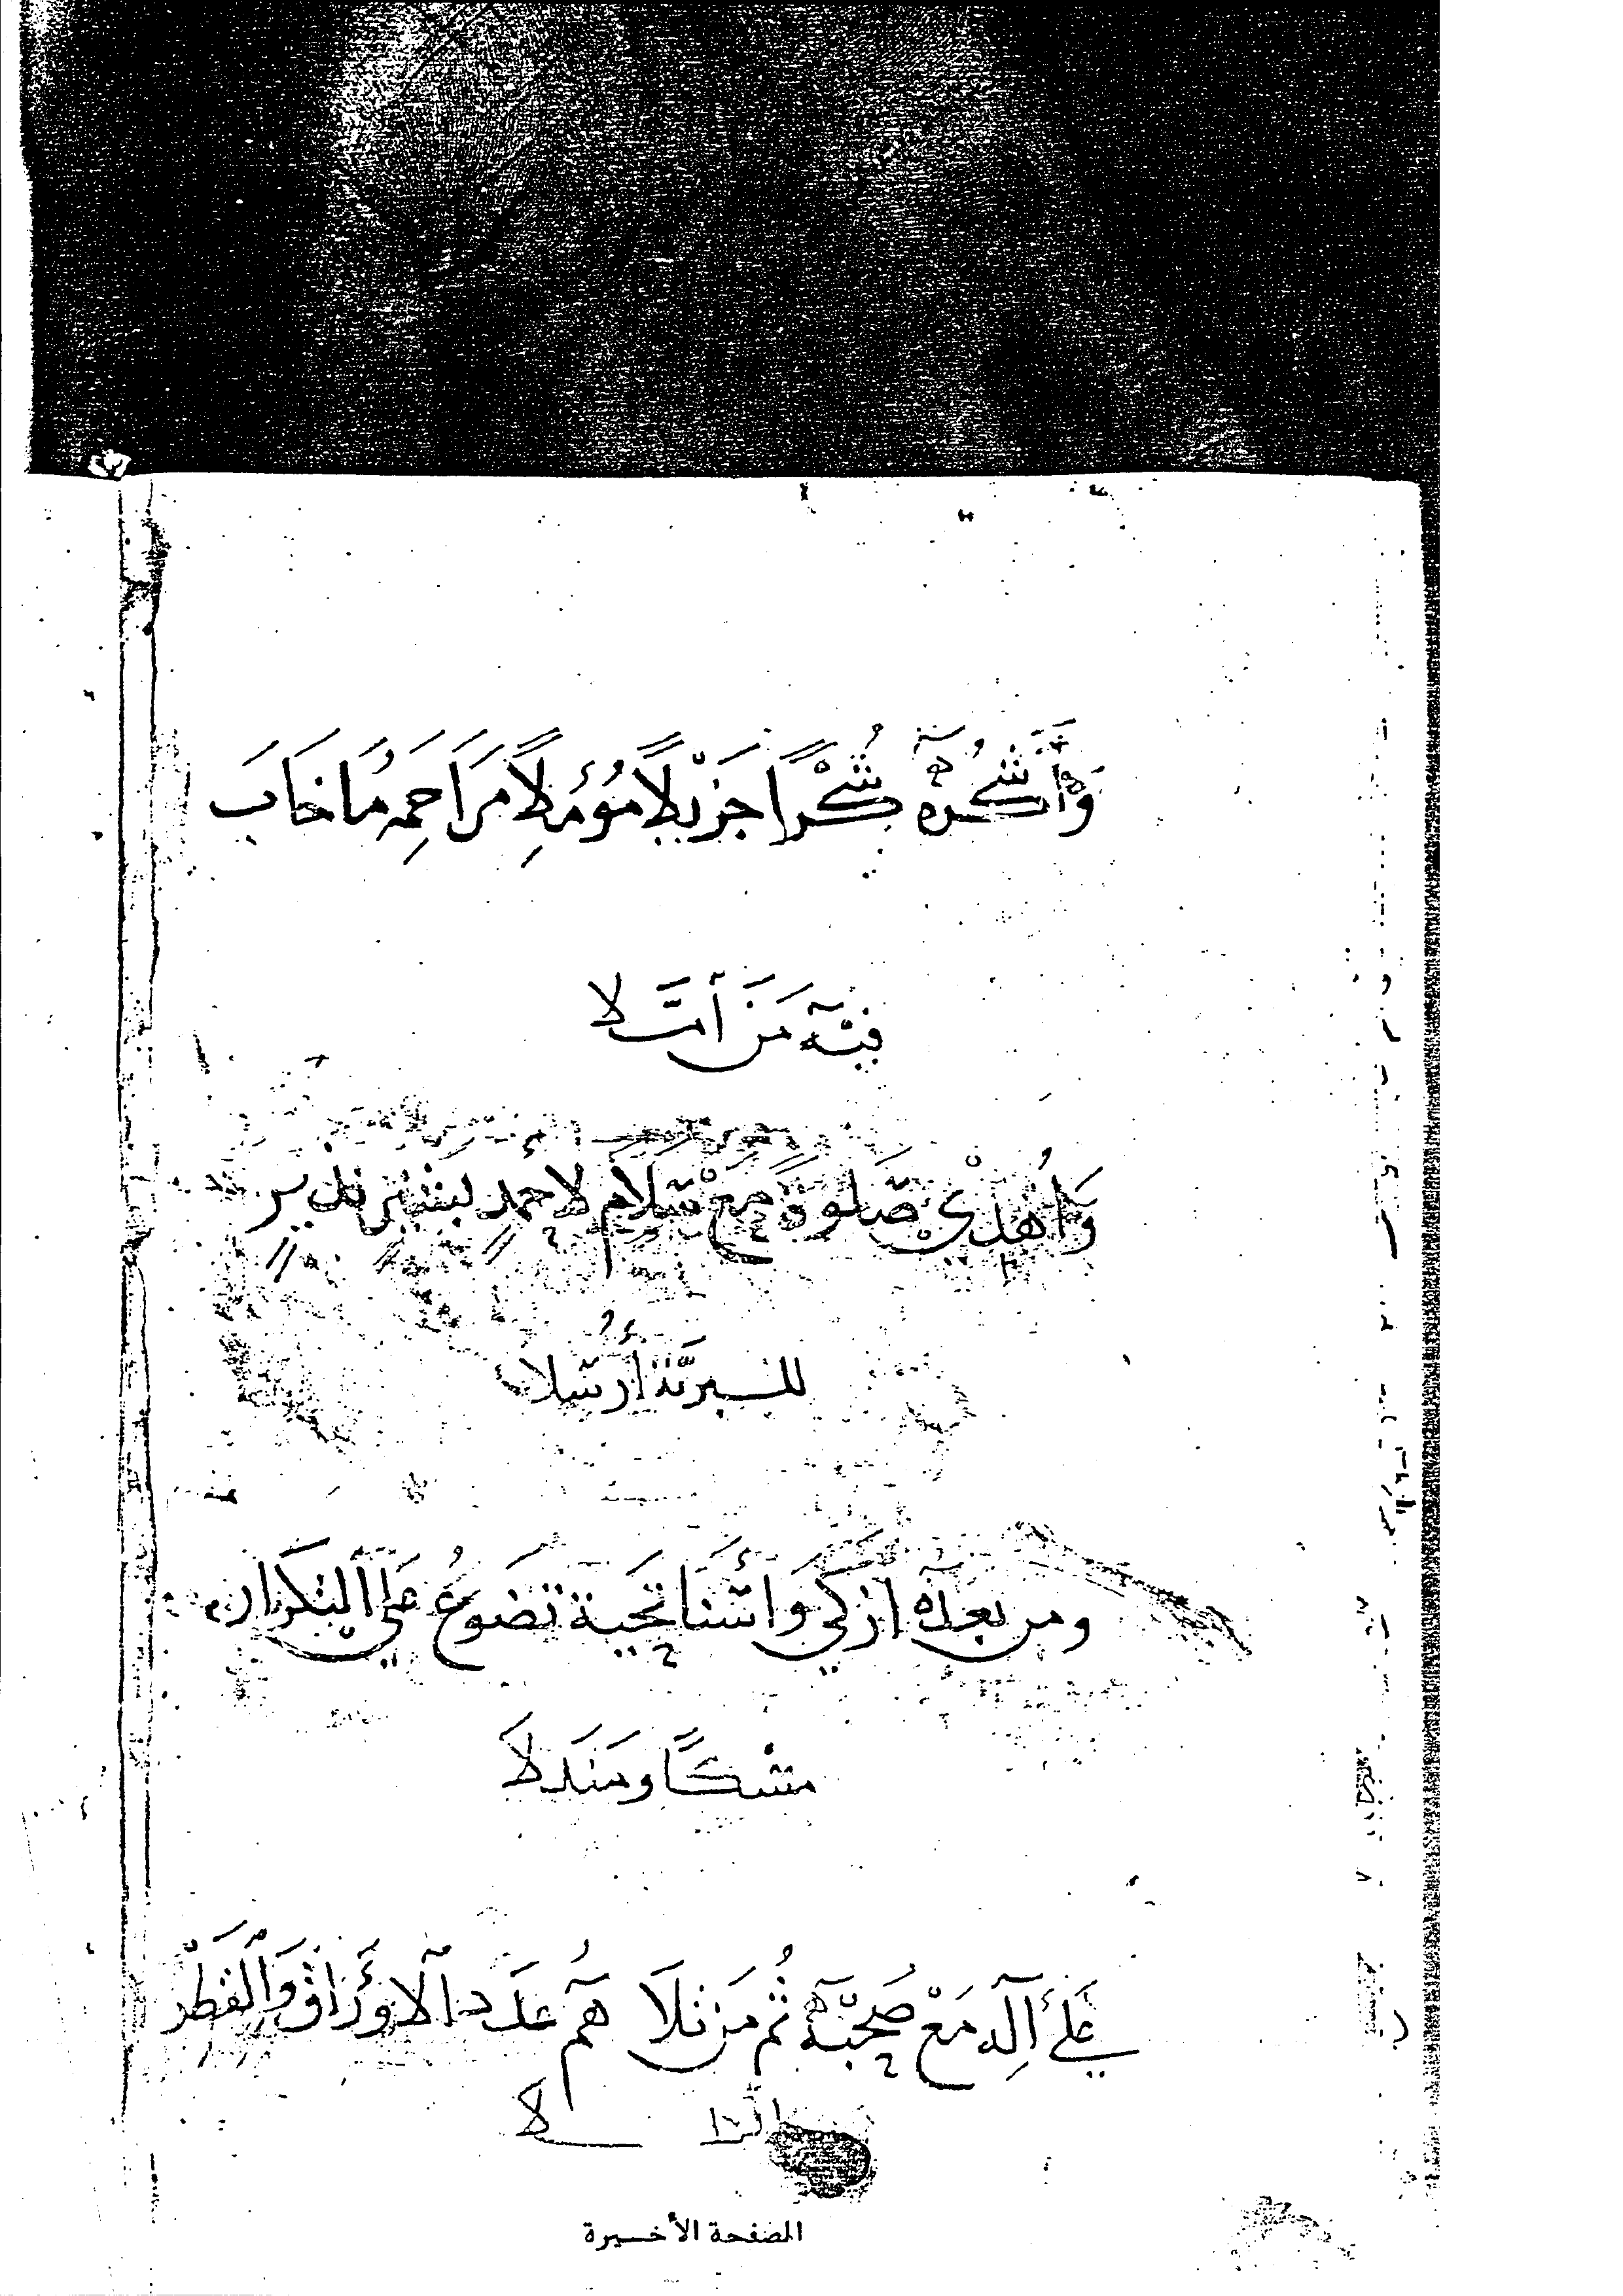 وَأَشْكُرُهُ شُكْرًا جَزِيْلًا مُؤَمِّلًا مَرَاحِمَهُ مَا خَابَ
فِيْهِ مَنْ أَمَّلَا
وَأُهْدِيْ صَلٰوةً مَعْ سَلَامٍ لِاحْمَدٍ بَشِيْرٍ نَذِيْرٍ
للبرية أرسلا
ومن بعده ازكي وأسنا تحية تضوع على التكرار
مسكًا ومندلا
علىٰ آلِه مَعْ صَحْبِهٖ ثُم مَن تَلَا هُم عَدَد الاوْرَاقِ وَالْقَطْرِ
الصفحة الأخيرة